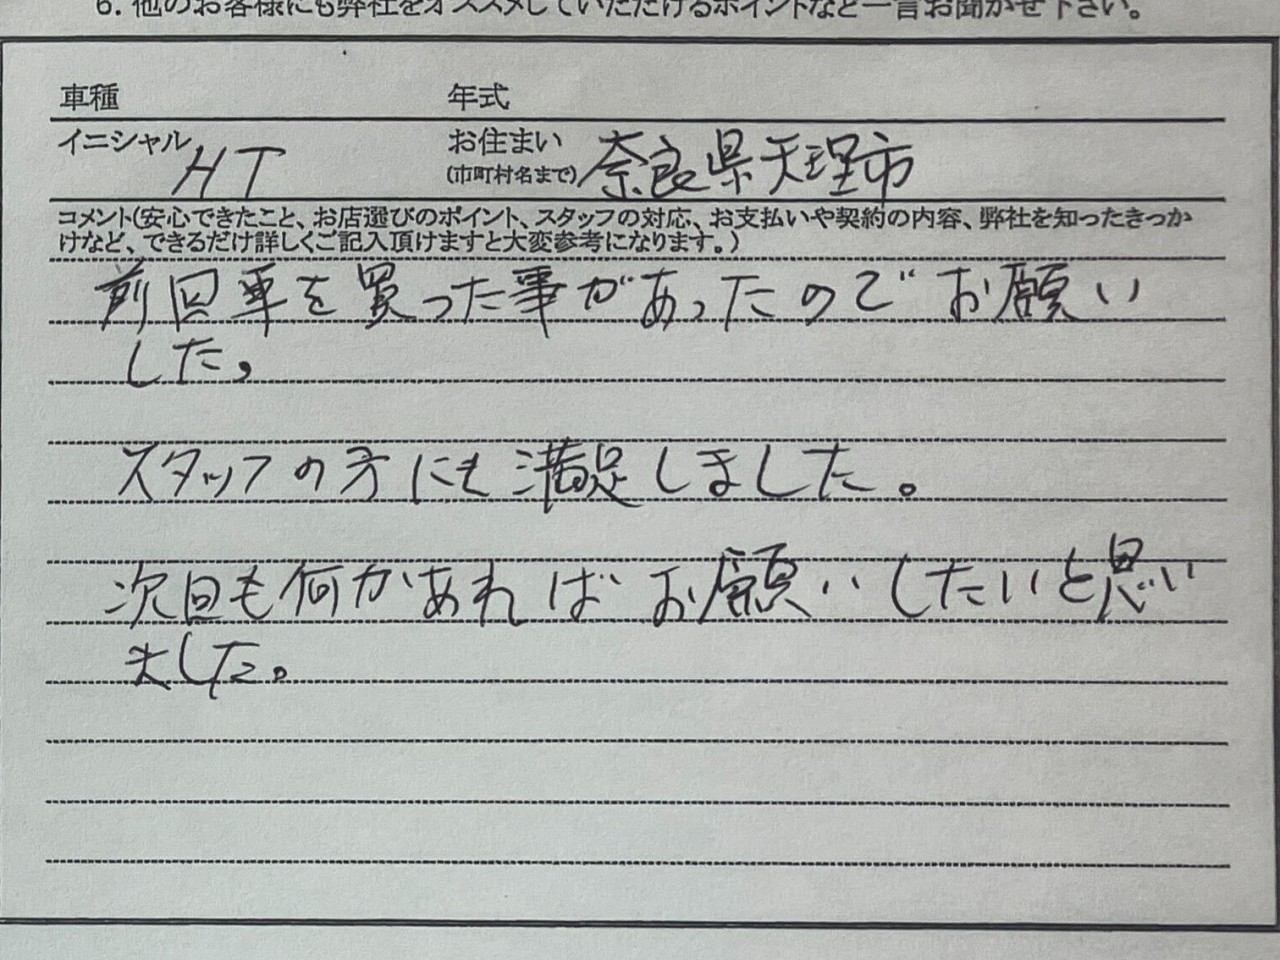 6. 他のお客様にも弊社をオススメしていただけるポイントなど一言お聞かせ下さい。
車種 年式
イニシャル HT お住まい(市町村名まで) 奈良県天理市
コメント(安心できたこと、お店選びのポイント、スタッフの対応、お支払いや契約の内容、弊社を知ったきっか
けなど、できるだけ詳しくご記入頂けますと大変参考になります。)
前回車を買った事があったのでお願い
した。
スタッフの方にも満足しました。
次回も何かあればお願いしたいと思い
ました。